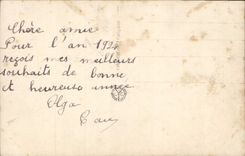 Chère amie
Pour l'an 1924
reçois mes meilleurs
souhaits de bonne
et heureuse année
Olga